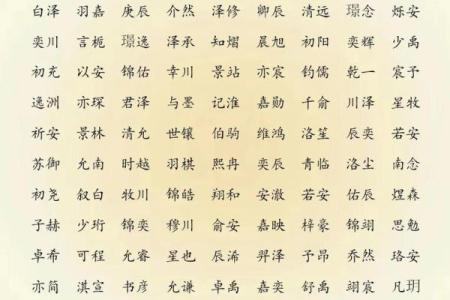 白泽 羽嘉 庚辰 介然 泽修 卿辰 清远 璟念 烁安
奕川 言栀 璟逸 泽承 知熠 晨旭 初阳 奕辉 少禹
初充 以安 锦佑 幸川 景站 亦宸 钧儒 乾一 宸予
逸洲 亦琛 君泽 与墨 记淮 嘉勋 千俞 川泽 星牧
祈安 景林 清允 世镶 伯驹 维鸿 洛笙 辰奕 若安
苏御 允南 时越 羽棋 熙冉 奕辰 青临 洛尘 南念
初尧 叙白 牧川 锦皓 翔和 安澈 若安 佑辰 煜森
子赫 少珩 锦奕 穆川 俞安 嘉映 梓豪 锦翊 思勉
卓希 可程 允睿 星也 辰浠 羿泽 予昂 乔然 珞安
亦简 淇宣 书彦 允谦 卓禹 嘉奕 舒禹 翊宸 凡玥